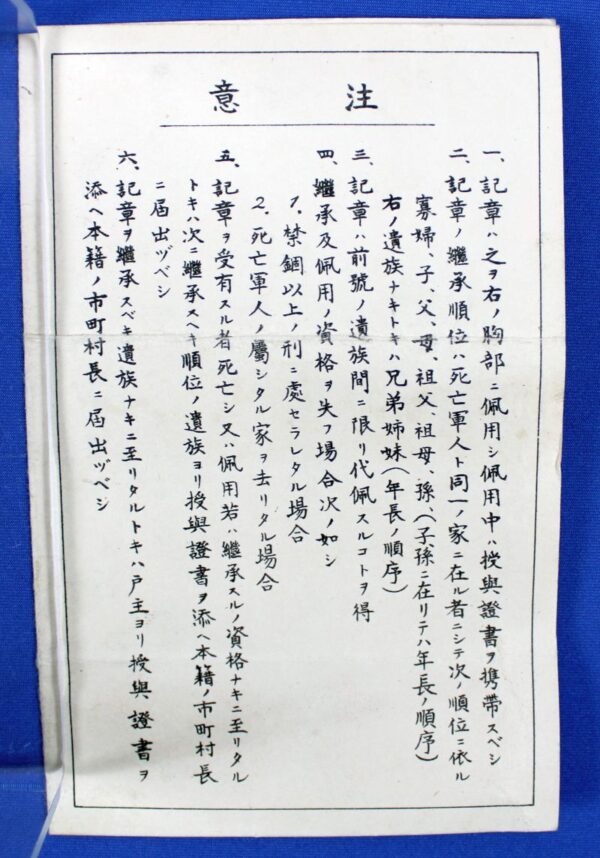 注意
一、記章ハ之ヲ右ノ胸部ニ佩用シ佩用中ハ授與證書ヲ携帶スベシ
二、記章ノ繼承順位ハ死亡軍人ト同一ノ家ニ在ル者ニシテ次ノ順位ニ依ル
寡婦、子、父、母、祖父、祖母、孫、(子、孫ニ在リテハ年長ノ順序)
右ノ遺族ナキトキハ兄弟姉妹(年長ノ順序)
三、記章ハ前號ノ遺族間ニ限リ代佩スルコトヲ得
四、繼承及佩用ノ資格ヲ失フ場合次ノ如シ
1.禁錮以上ノ刑ニ處セラレタル場合
2.死亡軍人ノ屬シタル家ヲ去リタル場合
五、記章ヲ受有スル者死亡シ又ハ佩用若ハ繼承スルノ資格ナキニ至リタル
トキハ次ニ繼承スヘキ順位ノ遺族ヨリ授與證書ヲ添ヘ本籍ノ市町村長
ニ届出ヅベシ
六、記章ヲ繼承スベキ遺族ナキニ至リタルトキハ戸主ヨリ授與證書ヲ
添ヘ本籍ノ市町村長ニ届出ヅベシ